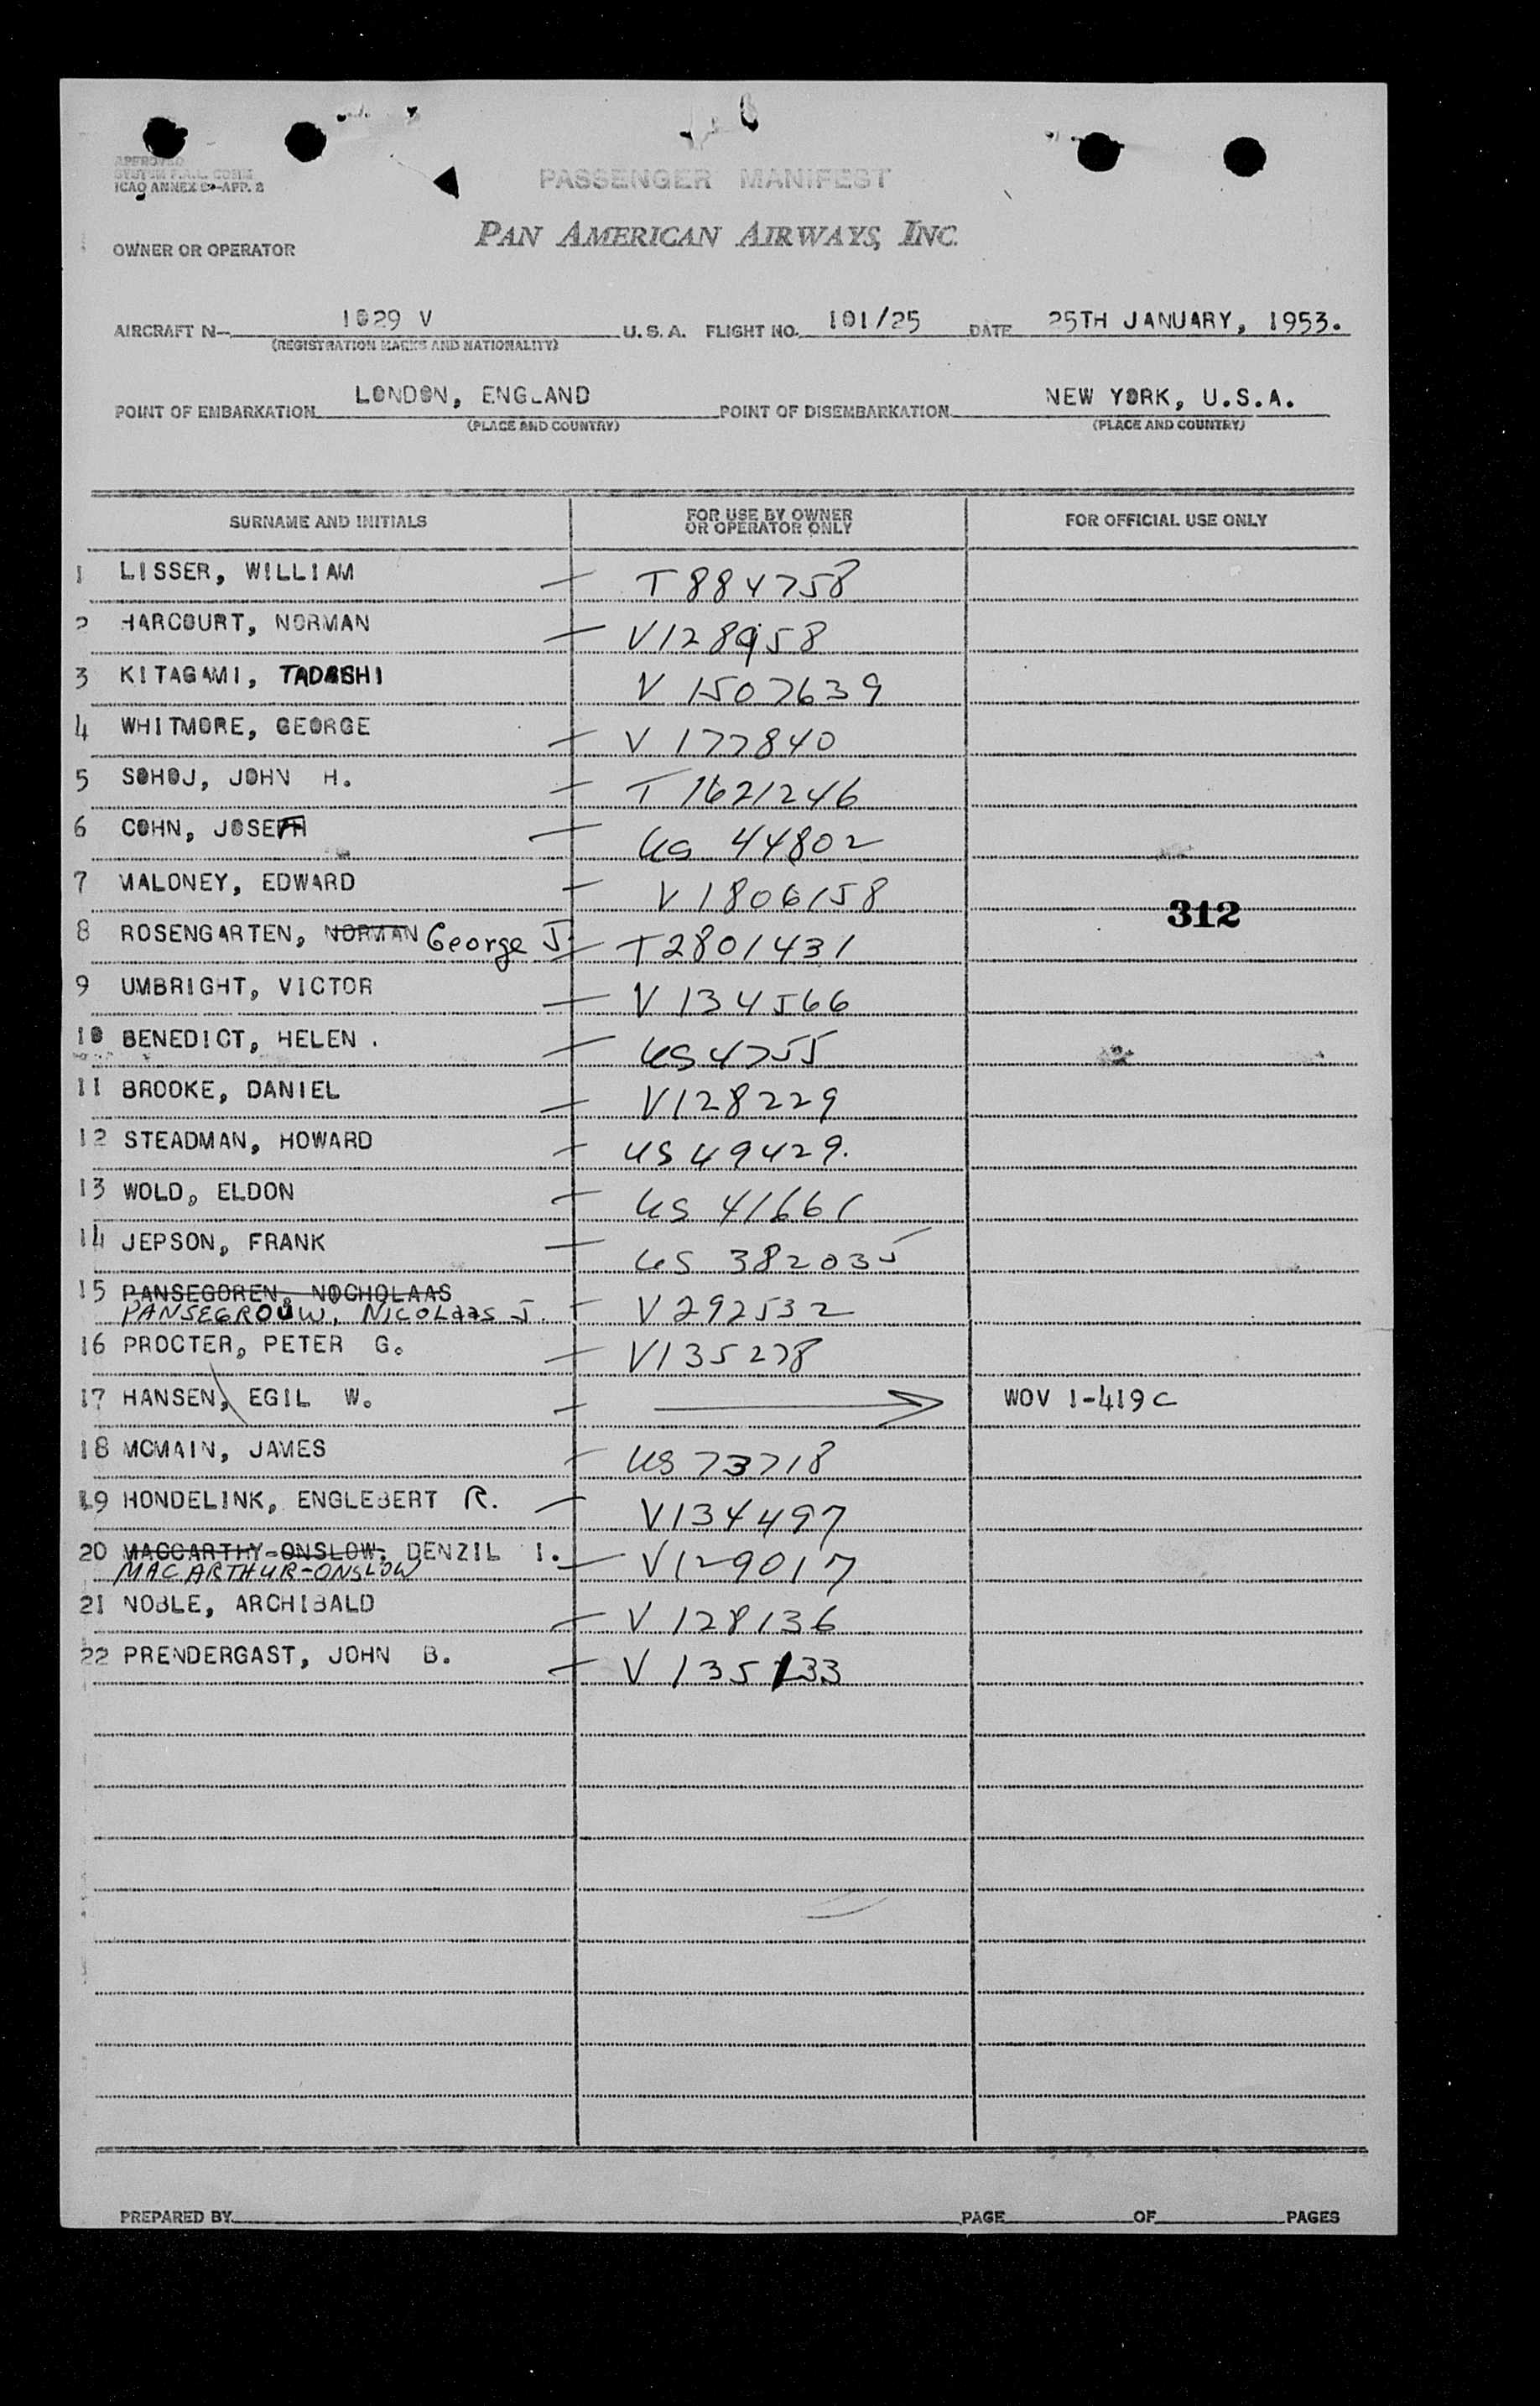 APPROVED
SYSTEM F.A.L. COM'E
ICAO ANNEX 9-APP. 2
PASSENGER MANIFEST
PAN AMERICAN AIRWAYS, INC.
OWNER OR OPERATOR
AIRCRAFT N- 1029 V U.S.A. FLIGHT NO. 101/25 DATE 25TH JANUARY, 1953.
(REGISTRATION MARKS AND NATIONALITY)
POINT OF EMBARKATION LONDON, ENGLAND POINT OF DISEMBARKATION NEW YORK, U.S.A.
(PLACE AND COUNTRY) (PLACE AND COUNTRY)
SURNAME AND INITIALS FOR USE BY OWNER OR OPERATOR ONLY FOR OFFICIAL USE ONLY
1 LISSER, WILLIAM — T 884758
2 HARCOURT, NORMAN — V128958
3 KITAGAMI, TADASHI V 1507639
4 WHITMORE, GEORGE — V 177840
5 SOHOJ, JOHN H. — T 1621246
6 COHN, JOSEPH — US 44802
7 MALONEY, EDWARD — V 1806158
312
8 ROSENGARTEN, NORMAN George J. — T2801431
9 UMBRIGHT, VICTOR — V 134566
10 BENEDICT, HELEN . — US 4755
11 BROOKE, DANIEL — V128229
12 STEADMAN, HOWARD — US 49429.
13 WOLD, ELDON — US 41661
14 JEPSON, FRANK — US 382035
15 PANSEGOREN, NOCHOLAAS
PANSEGROUW, NICOLAAS J. — V 292532
16 PROCTER, PETER G. — V135278
17 HANSEN, EGIL W. — → WOV 1-419C
18 MCMAIN, JAMES — US 73718
19 HONDELINK, ENGLEBERT R. — V134497
20 MACCARTHY-ONSLOW, DENZIL I. — V129017
MACARTHUR-ONSLOW
21 NOBLE, ARCHIBALD — V 128136
22 PRENDERGAST, JOHN B. — V 135133
PREPARED BY PAGE OF PAGES